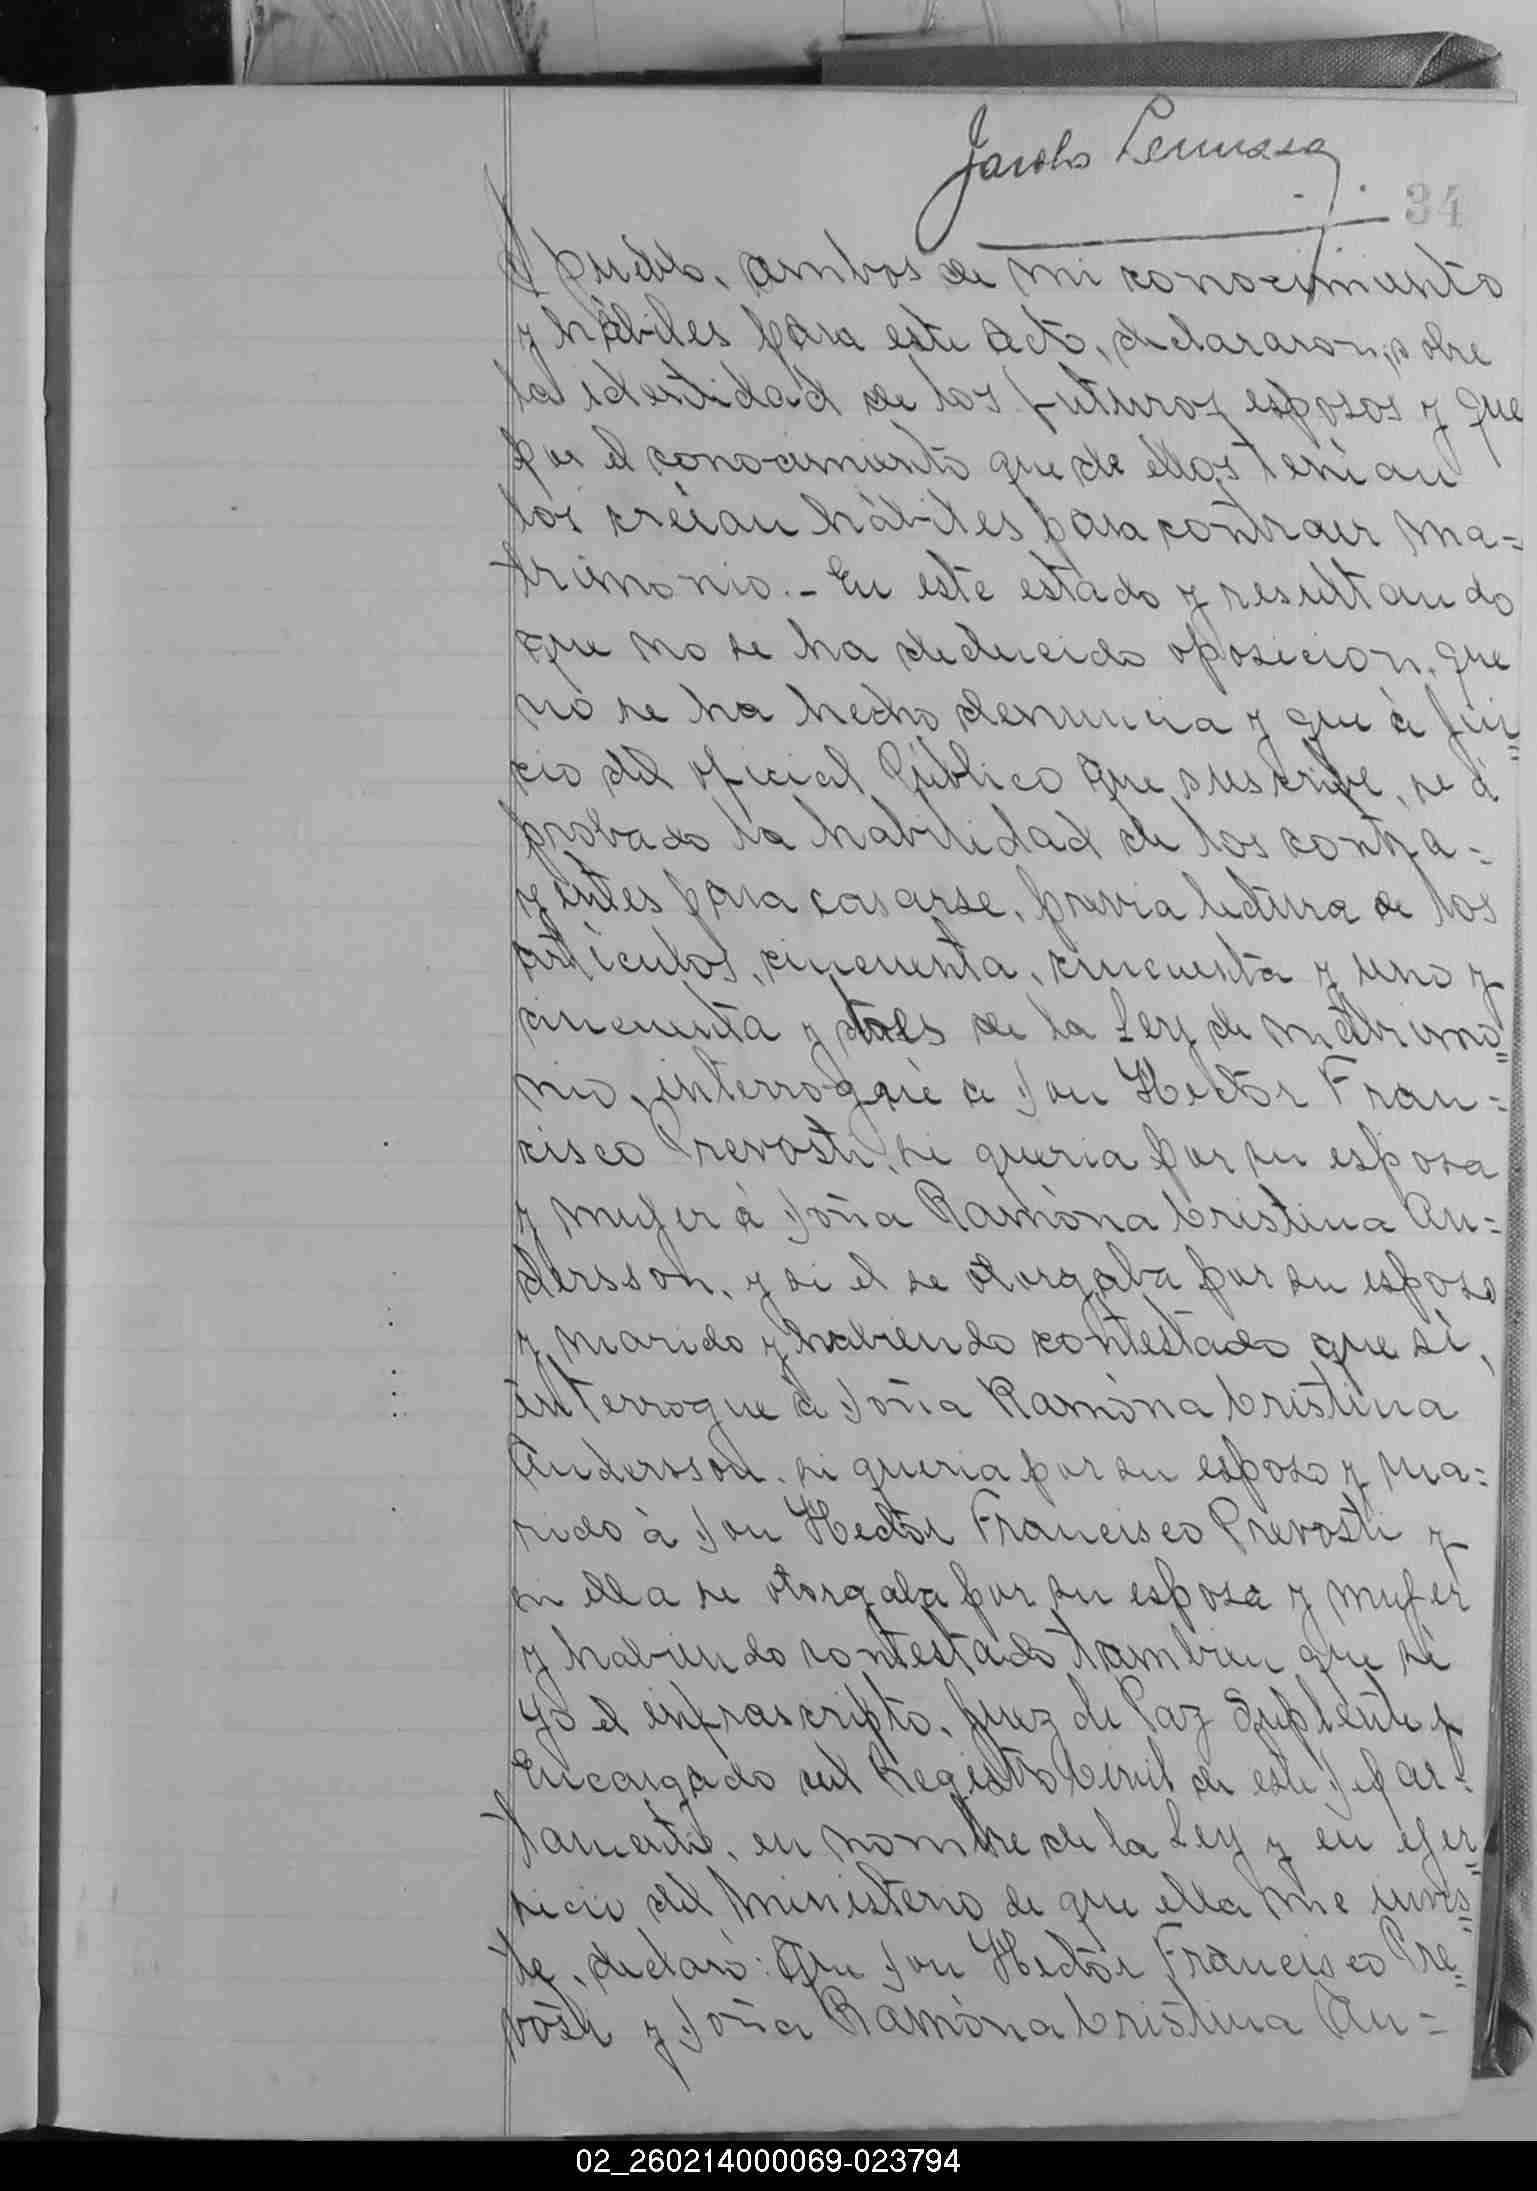 Jacobo
34
pueblo, ambos de mi conocimiento
y hábiles para este acto, declararon, sobre
la identidad de los futuros esposos y que
por el conocimiento que de ellos tenian
los creian hábiles para contraer ma=
trimonio.- En este estado y resultando
que no se ha deducido oposicion, que
no se ha hecho denuncia y que à jui=
cio del oficial Público que suscribe, se à
probado la habilidad de los contra=
yentes para casarse, previa lectura de los
artículos, cincuenta, cincuenta y uno y
cincuenta y tres de la Ley de matrimo=
nio, interroguè a Don Hector Fran=
cisco Prevosti, si queria por su esposa
y mujer à Doña Ramòna Cristina An=
dersson, y si el se otorgaba por su esposo
y marido y habiendo contestado que sì,
interrogue à Doña Ramòna Cristina
Andersson, si queria por su esposo y ma=
rido à Don Hector Francisco Prevosti y
si ella se otorgaba por su esposa y mujer
y habiendo contestado tambien que sì
yo el infrascripto, Juez de Paz Suplente y
Encargado del Registro Civil de este Depar=
tamento, en nombre de la Ley y en ejer=
sicio del Ministerio de que ella me invis=
te, declaró: Que Don Hector Francisco Pre=
vosti y Doña Ramòna Cristina An=
02_260214000069-023794